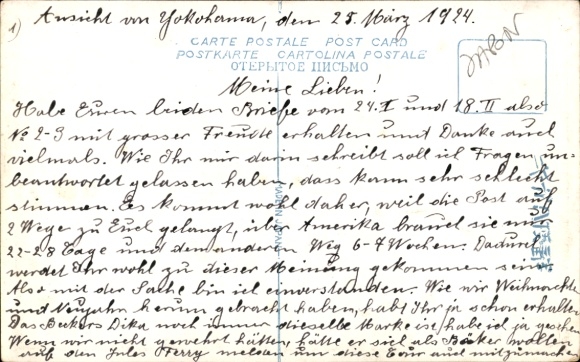 1)
Ansicht von Yokohama, den 25. März 1924.
JAPON
CARTE POSTALE POST CARD
POSTKARTE CARTOLINA POSTALE
ОТКРЫТОЕ ПИСЬМО
Meine Lieben!
Habe Euren beiden Briefe vom 24.I und 18.II also
No 2-3 mit grosser Freude erhalten und Danke auch
vielmals. Wie Ihr mir darin schreibt soll ich Fragen un-
beantwortet gelassen haben, dass kann sehr schlecht
stimmen. Es kommt wohl daher, weil die Post auf
2 Wege zu Euch gelangt, über Amerika brauch sie nur
22-28 Tage und dem anderen Weg 6-7 Wochen. Dadurch
werdet Ihr wohl zu dieser Meinung gekommen sein.
Also mit der Sache bin ich einverstanden. Wie wir Weihnachten
und Neujahr herum gebracht haben, habt Ihr ja schon erhalten
Das Beckers Dika noch immer dieselbe Marke ist, habe ich ja gesehen
Wenn wir nicht gewehrt hätten, hätte er sich als Bäcker wollen
auf den Jules Ferry melden um diese Tour auch mitzumach